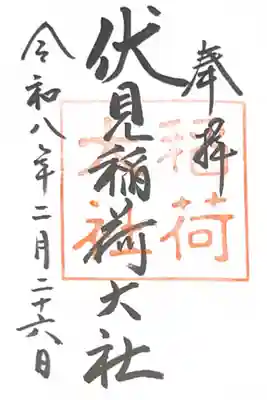 奉拝
伏見稲荷大社
稲荷
大社
令和八年二月二十六日